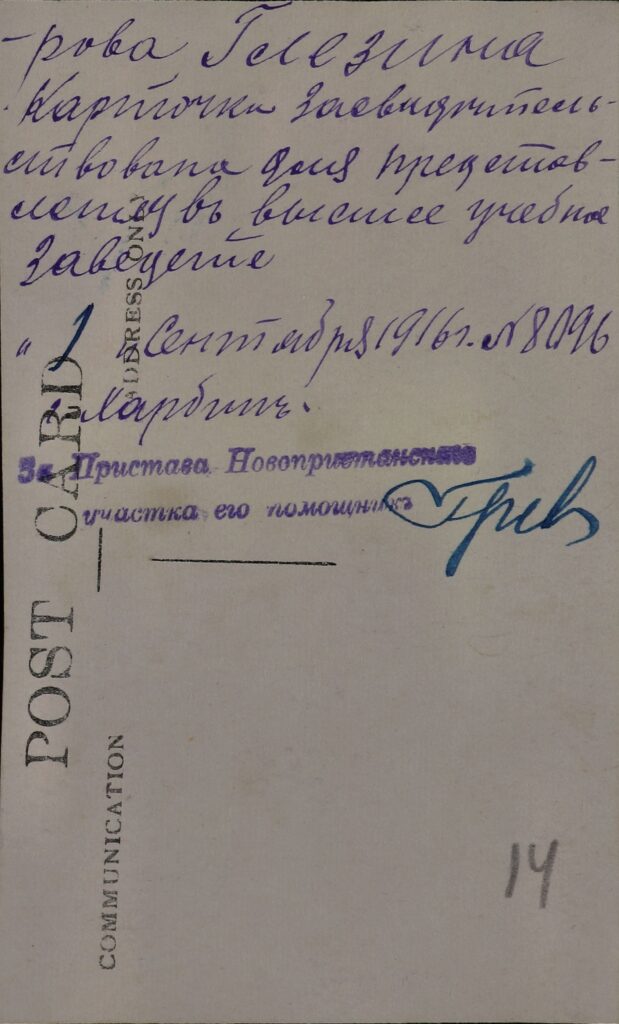 -рова Глезина
Карточка засвидѣтель-
ствована для представ-
въ высшее учебное
Заведеніе
"1" Сентября 1916 г. № 8096
Харбинъ.
За Пристава Новопристанскаго
участка его помощникъ
POST CARD
ADDRESS ONLY
COMMUNICATION
14